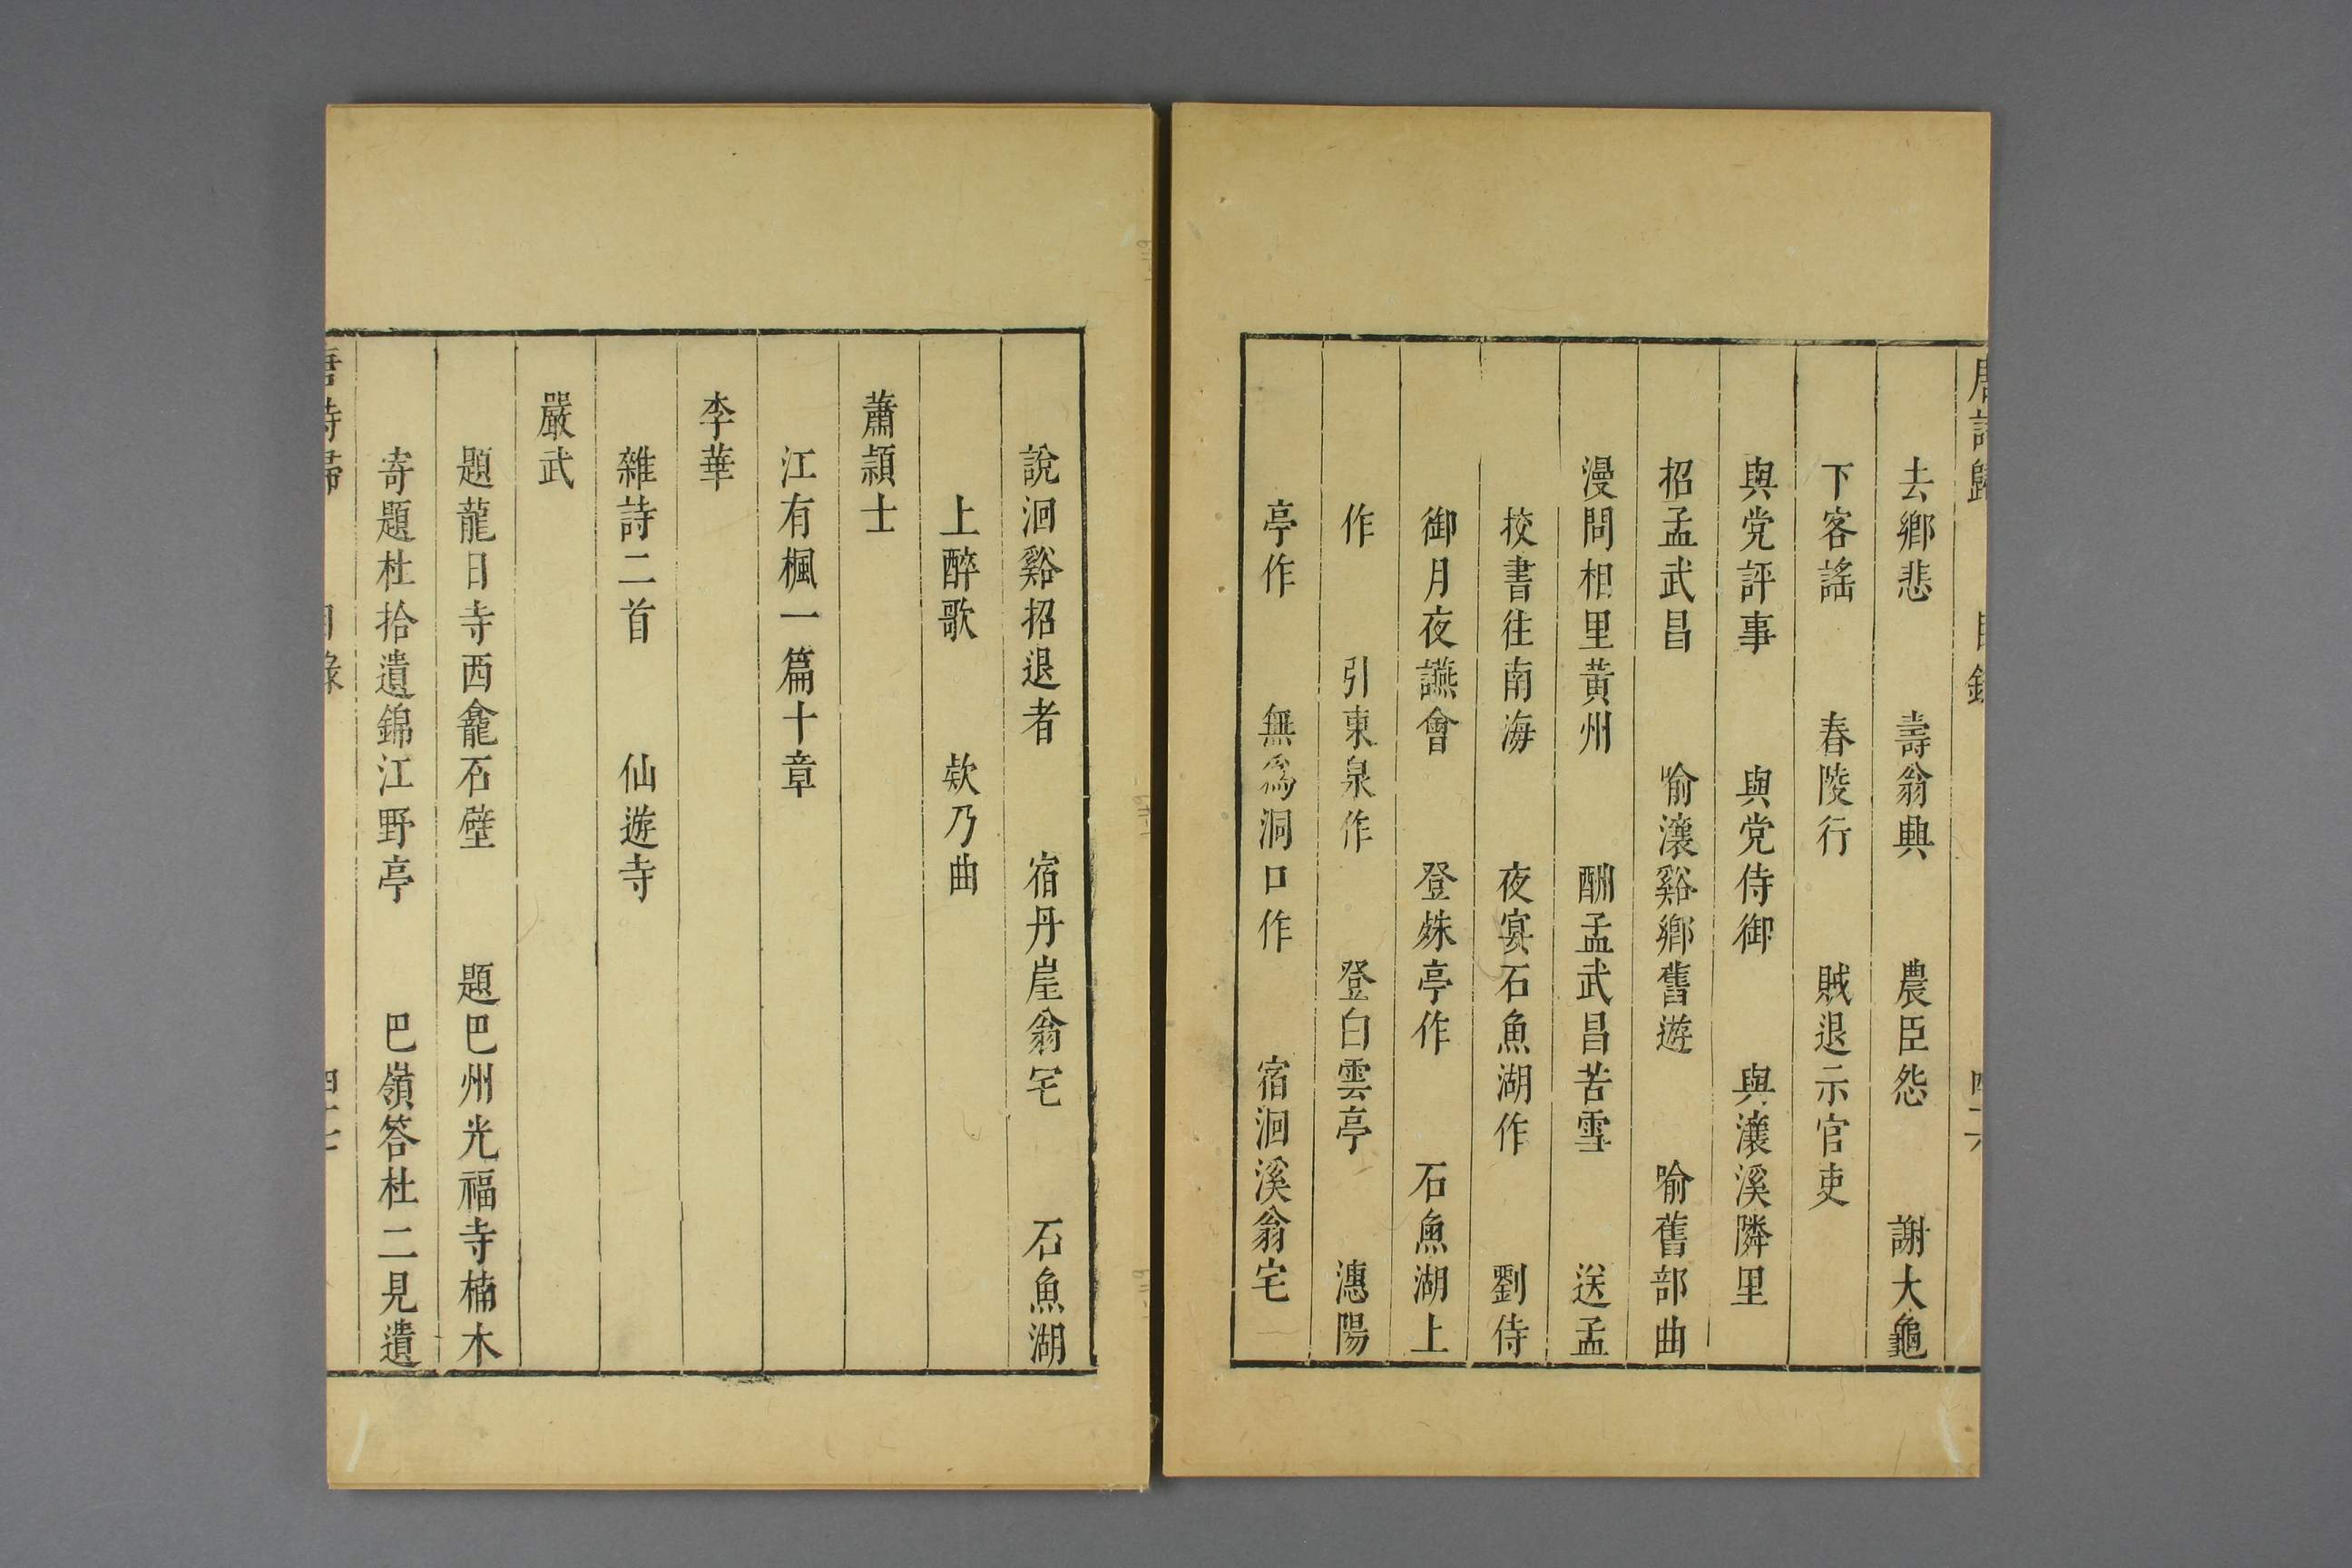 唐詩歸 目錄 四十六
去鄉悲 壽翁興 農臣怨 謝大龜
下客謠 舂陵行 賊退示官吏
與党評事 與党侍御 與瀼溪隣里
招孟武昌 喻瀼谿鄉舊遊 喻舊部曲
漫問相里黃州 酬孟武昌苦雪 送孟
挍書往南海 夜宴石魚湖作 劉侍
御月夜讌會 登殊亭作 石魚湖上
作 引東泉作 登白雲亭 㵙陽
亭作 無為洞口作 宿洄溪翁宅
說洄谿招退者 宿丹崖翁宅 石魚湖
上醉歌 欸乃曲
蕭頴士
江有楓一篇十章
李華
雜詩二首 仙遊寺
嚴武
題龍日寺西龕石壁 題巴州光福寺楠木
寄題杜拾遺錦江野亭 巴嶺答杜二見遺
唐詩歸 目錄 四十七